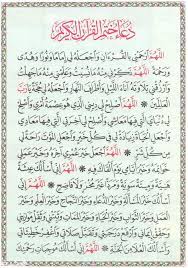 دُعَاءُ خَتْمِ الْقُرْآنِ الْكَرِيمِ
اللَّهُمَّ ارْحَمْنِي بِالْقُرْءَانِ وَاجْعَلْهُ لِي إِمَامًا وَنُورًا وَهُدًى
وَرَحْمَةً اللَّهُمَّ ذَكِّرْنِي مِنْهُ مَا نَسِيتُ وَعَلِّمْنِي مِنْهُ مَاجَهِلْتُ
وَارْزُقْنِي تِلَاوَتَهُ آنَاءَ اللَّيْلِ وَأَطْرَافَ النَّهَارِ وَاجْعَلْهُ لِي حُجَّةً يَارَبَّ
الْعَالَمِينَ * اللَّهُمَّ أَصْلِحْ لِي دِينِي الَّذِي هُوَ عِصْمَةُ أَمْرِي وَأَصْلِحْ لِي
دُنْيَايَ الَّتِي فِيهَا مَعَاشِي وَأَصْلِحْ لِي آخِرَتِي الَّتِي فِيهَا مَعَادِي
وَاجْعَلِ الْحَيَاةَ زِيَادَةً لِي فِي كُلِّ خَيْرٍ وَاجْعَلِ الْمَوْتَ رَاحَةً لِي
مِنْ كُلِّ شَرٍّ * اللَّهُمَّ اجْعَلْ خَيْرَ عُمْرِي آخِرَهُ وَخَيْرَ عَمَلِي
خَوَاتِمَهُ وَخَيْرَ أَيَّامِي يَوْمَ أَلْقَاكَ فِيهِ * اللَّهُمَّ إِنِّي أَسْأَلُكَ عِيشَةً
هَنِيَّةً وَمِيتَةً سَوِيَّةً وَمَرَدًّا غَيْرَ مُخْزٍ وَلَا فَاضِحٍ * اللَّهُمَّ
إِنِّي أَسْأَلُكَ خَيْرَ الْمَسْأَلَةِ وَخَيْرَ الدُّعَاءِ وَخَيْرَ النَّجَاحِ وَخَيْرَ الْعِلْمِ
وَخَيْرَ الْعَمَلِ وَخَيْرَ الثَّوَابِ وَخَيْرَ الْحَيَاةِ وَخَيْرَ الْمَمَاتِ